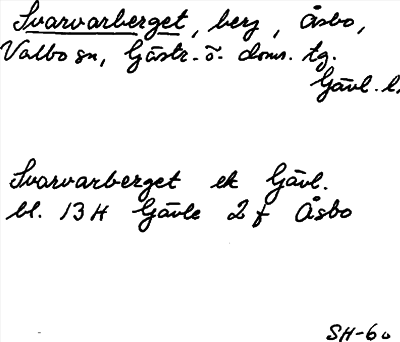 Svarvarberget, berg, Åsbo,
Valbo sn, Gästr. ö. doms. tg.
Gävl. l.
Svarvarberget ek Gävl.
bl. 13 H Gävle 2 f Åsbo
SH-60